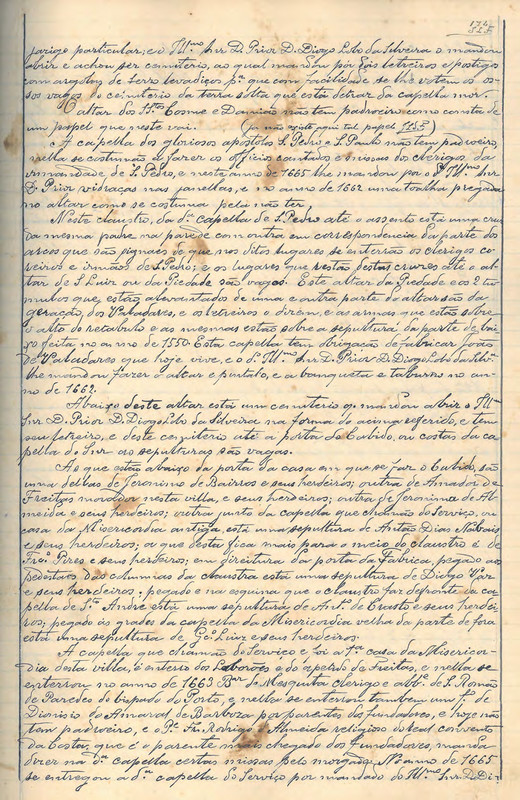 174
jazigo particular; e o Ill.mo Snr D. Prior D. Diogo Lobo da Silveira o mandou
abrir e achou ser cemiterio, ao qual mandou pôr seis letreiros e postigo
com argolas de ferro levadiços p.a que com facilidade se lhe botem os os-
sos vagos do cemiterio da terra solta que está detraz da capella mór.
O altar dos S.tos Cosme e Damião não tem padroeiro como consta de
um papel que neste vai. (ja não existe aqui tal papel 1255)
A capella dos gloriosos apostolos S. Pedro e S. Paulo não tem padroeiro,
nella se costumão a fazer os officios cantados e missas dos clerigos da
irmandade de S. Pedro, e neste anno de 1665 lhe mandou por o Ill.mo Snr
D. Prior vidraças nas janellas, e no anno de 1662 uma toalha pregada
no altar como se costuma pela não ter.
Neste claustro, da d.a capella de S. Pedro até o assento está uma cruz
da mesma pedra na parede com outra em correspondencia da parte dos
arcos que são signaes de que nos ditos lugares se enterrão os clerigos co-
reiros e irmãos de S. Pedro; e os lugares que restão destas cruzes até o al-
tar de S. Luiz ou da Piedade são vagos. Este altar da Piedade e os 2 tu-
mulos que, estão alevantados de uma e outra parte do altar são da
geração dos Valadares, e os letreiros o dizem, e as armas que estão sobre
o alto do retabulo e as mesmas estão sobre a sepultura da parte de bai-
xo feita no anno de 1550. Esta capella tem obrigação de fabricar João
de Valadares que hoje vive, e o d.o Ill.mo Snr D. Prior D. Diogo Lobo da Silv.a
lhe mandou fazer o altar e portalo, e a banqueta e taburno no an-
no de 1662.
Abaixo deste altar está um cemiterio q. mandou abrir o Ill.mo
Snr D. Prior D. Diogo Lobo da Silveira na forma do acima referido, e tem
seu letreiro, e deste cemiterio até a porta do Cabido, ou costas da ca-
pella do Snr as sepulturas são vagas.
As que estão abaixo da porta da casa em que se faz o Cabido, são
uma dellas de Jeronimo de Bairros e seus herdeiros; outra de Amador de
Freitas morador nesta villa, e seus herdeiros; outra de Jeronima de Al-
meida e seus herdeiros; outra junto da capella que chamão do Serviço, ou
casa da Misericordia antiga, está uma sepultura de Antão Dias Nabais
e seus herdeiros; a que desta fica mais para o meio do claustro é de
Fr.co Pires e seus herdeiros; em direitura da porta da Fabrica, pegado aos
pedestaes das columnas da claustra está uma sepultura de Diogo Vaz
e seus herdeiros; pegado na esquina que o claustro faz defronte da ca-
pella de S.to André está uma sepultura de Ant.o de Crasto e seus herdei-
ros; pegado ás grades da capella da Misericordia velha da parte de fora
está uma sepultura de G.o Luiz e seus herdeiros.
A capella que chamão do Serviço e foi a 1.a casa da Misericor-
dia desta villa, é enterro dos e do apelido de Freitas, e nella se
enterrou no anno de 1663 de Mesquita clerigo e abb.e de S. Romão
de Paredes do bispado do Porto, e nella se enterrou tambem um f.o de
Dionisio do Amaral de Barboza por parentes dos fundadores, e hoje não
tem padroeiro, e o P.e Fr. Rodrigo d'Almeida religioso do real convento
da Costa, que é o parente mais chegado dos fundadores, manda
dizer na d.a capella certas missas pelo morgado. No anno de 1665
se entregou a d.a capella do Serviço por mandado do Ill.mo Snr D. Di-